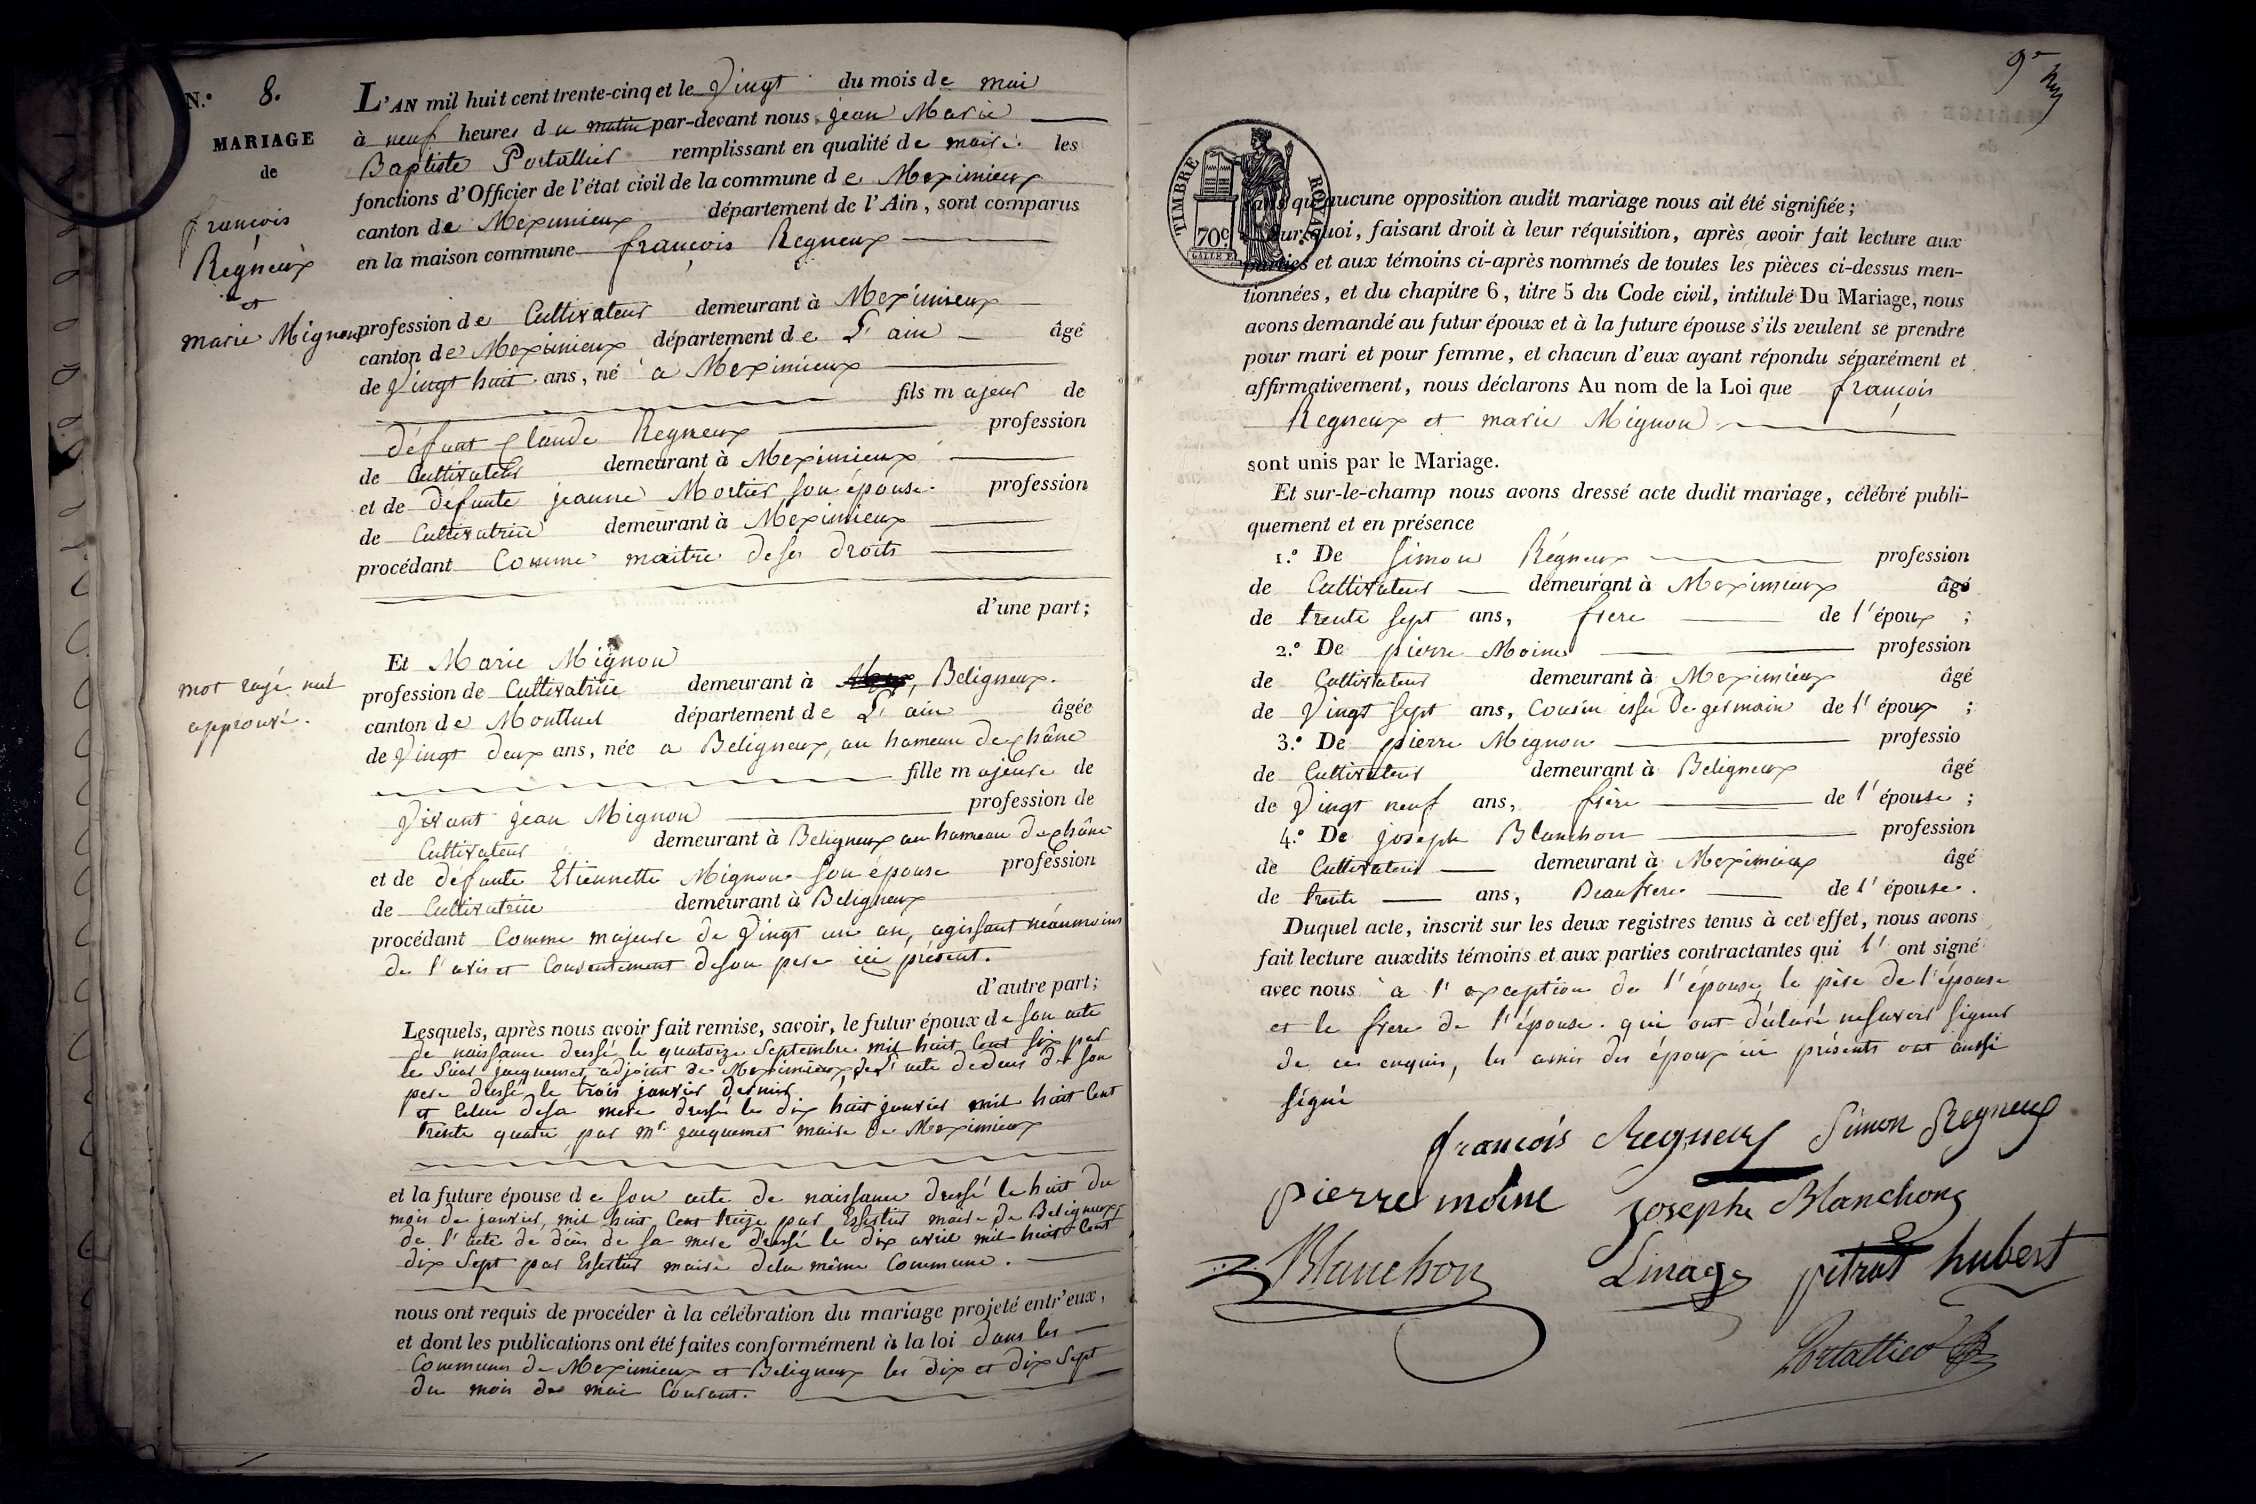 N.° 8.
MARIAGE
de
françois
Regneux
et
marie Mignon
L'AN mil huit cent trente-cinq et le Vingt du mois de mai
à neuf heures du matin par-devant nous jean Marie
Baptiste Portallier remplissant en qualité de maire les
fonctions d'Officier de l'état civil de la commune de Meximieux
canton de Meximieux département de l'Ain, sont comparus
en la maison commune françois Regneux
profession de Cultivateur demeurant à Meximieux
canton de Meximieux département de L'ain âgé
de Vingt huit ans, né a Meximieux
fils majeur de
défunt Claude Regneux profession
de Cultivateur demeurant à Meximieux
et de défunte jeanne Mortier son épouse profession
de Cultivatrice demeurant à Meximieux
procédant Comme maitre de ses droits
d'une part;
Et Marie Mignon
mot rayé nul
approuvé.
profession de Cultivatrice demeurant à Beligneux.
canton de Montluel département de L'ain âgée
de Vingt deux ans, née a Beligneux, au hameau de châne
fille majeure de
Vivant jean Mignon profession de
Cultivateur demeurant à Beligneux au hameau de châne
et de défunte Etiennette Mignon son épouse profession
de Cultivatrice demeurant à Beligneux
procédant Comme majeure de Vingt un an, agissant néanmoins
de l'avis et Consentement de son pere ici présent.
d'autre part;
Lesquels, après nous avoir fait remise, savoir, le futur époux de son acte
de naissance dressé le quatorze Septembre mil huit Cent six par
le Sieur jacquemet, adjoint de Meximieux, de l'acte de deces de son
pere dressé le trois janvier dernier
et Celui de sa mere dressé le dix huit janvier mil huit Cent
trente quatre par mr. jacquemet maire de Meximieux
et la future épouse de son acte de naissance dressé le huit du
mois de janvier, mil huit Cent treize par maire de Beligneux,
de l'acte de déces de sa mere dressé le dix avril mil huit Cent
dix Sept par maire de la même Commune.
nous ont requis de procéder à la célébration du mariage projeté entr'eux,
et dont les publications ont été faites conformément à la loi dans les
Communes de Meximieux et Beligneux les dix et dix Sept
du mois de mai Courant.
9e
TIMBRE ROYAL
70c
sans qu'aucune opposition audit mariage nous ait été signifiée;
Pourquoi, faisant droit à leur réquisition, après avoir fait lecture aux
parties et aux témoins ci-après nommés de toutes les pièces ci-dessus men-
tionnées, et du chapitre 6, titre 5 du Code civil, intitulé Du Mariage, nous
avons demandé au futur époux et à la future épouse s'ils veulent se prendre
pour mari et pour femme, et chacun d'eux ayant répondu séparément et
affirmativement, nous déclarons Au nom de la Loi que françois
Regneux et marie Mignon
sont unis par le Mariage.
Et sur-le-champ nous avons dressé acte dudit mariage, célébré publi-
quement et en présence
1.° De Simon Régneux profession
de Cultivateur demeurant à Meximieux âgé
de trente sept ans, frere de l'époux;
2.° De pierre Moine profession
de Cultivateur demeurant à Meximieux âgé
de Vingt sept ans, Cousin issu de germain de l'époux;
3.° De pierre Mignon professio
de Cultivateur demeurant à Beligneux âgé
de Vingt neuf ans, frère de l'épouse;
4.° De joseph Blanchon profession
de Cultivateur demeurant à Meximieux âgé
de trente ans, Beaufrere de l'épouse.
Duquel acte, inscrit sur les deux registres tenus à cet effet, nous avons
fait lecture auxdits témoins et aux parties contractantes qui l'ont signé
avec nous a l'exception de l'épouse, le père de l'épouse
et le frere de l'épouse. qui ont déclaré ne savoir signer
de ce enquis, les amis des époux ici présents ont aussi
signé
françois Regneux Simon Regneux
pierre moine Josephe Blanchon
Blanchon Linage pitrat hubert
Portallier